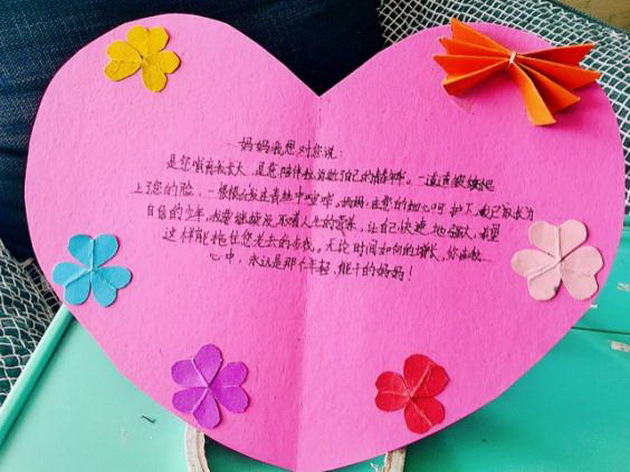 妈妈我想对您说:
是您哺育我长大,是您陪伴我消散了自己的青春年华。一道道皱纹爬
上了您的脸,一根根白发在青丝中闪现。妈妈,在您的细心呵护下,我已成长为
自信的少年,我要继续汲取着人生的营养,让自己快速地强大,希望
这样能拖住您老去的步伐。无论时间如何的增长,你在我
心中,永远是那个年轻,能干的妈妈!